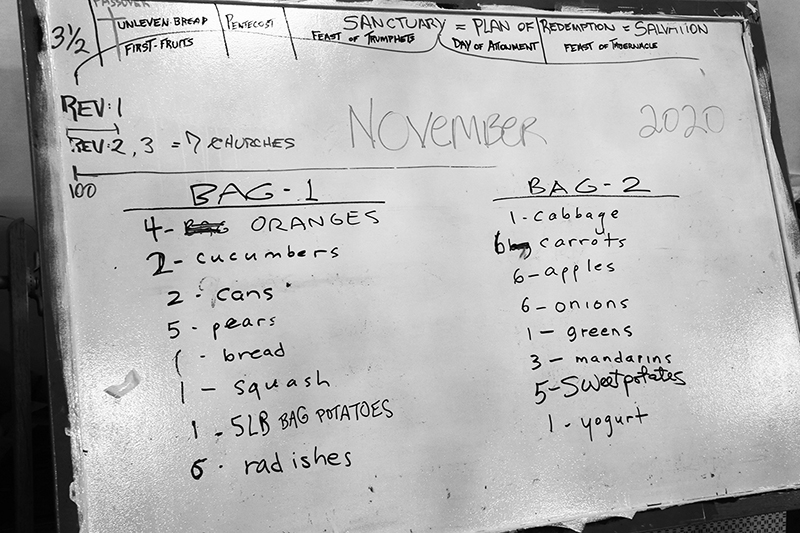 PASSOVER
3½ UNLEVEN·BREAD PENTECOST SANCTUARY = PLAN OF REDEMPTION = SALVATION
FIRST-FRUITS FEAST OF TRUMPHETS DAY OF ATONMENT FEAST OF TABERNACLE
REV:1
NOVEMBER 2020
REV:2, 3 = 7 CHURCHES
100
BAG-1
4- ORANGES
2- cucumbers
2- cans
5- pears
1- bread
1- squash
1- 5LB BAG POTATOES
6- radishes
BAG-2
1-cabbage
6 carrots
6-apples
6-onions
1-greens
3-mandarins
5-Sweetpotates
1-yogurt